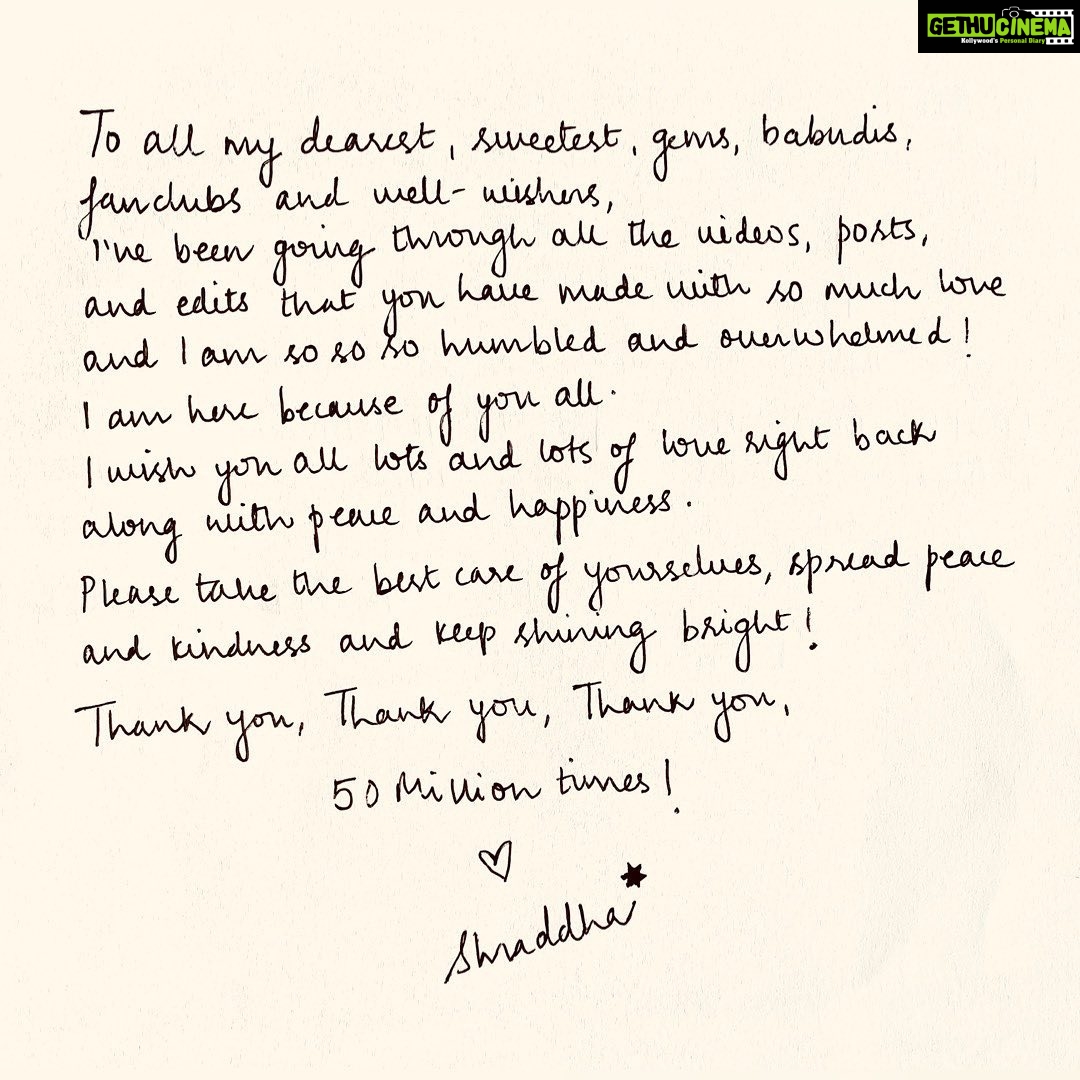 GETHUCINEMA
Kollywood's Personal Diary
To all my dearest, sweetest, gems, babudis,
fanclubs and well-wishers,
I've been going through all the videos, posts,
and edits that you have made with so much love
and I am so so so humbled and overwhelmed!
I am here because of you all.
I wish you all lots and lots of love right back
along with peace and happiness.
Please take the best care of yourselves, spread peace
and kindness and keep shining bright!
Thank you, Thank you, Thank you,
50 Million times!
Shraddha